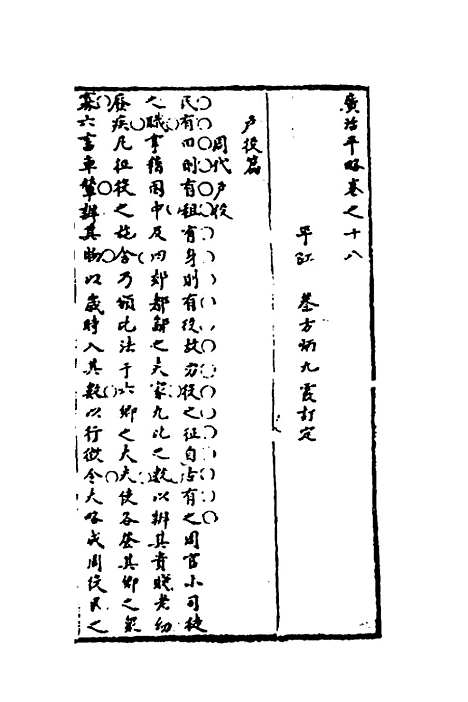 廣治平略卷之十八
平江　蔡方炳九霞訂定
戶役篇
周代戶役
民有田則有租有身則有役故力役之征自古有之周官小司徒
之職掌稽國中及四郊都鄙之夫家九比之數以辨其貴賤老幼
廢疾凡征役之施舍乃頒比法于六鄉之大夫使各登其鄉之衆
寡六畜車輦辨其物以歲時入其數以行徵令大略成周役民之